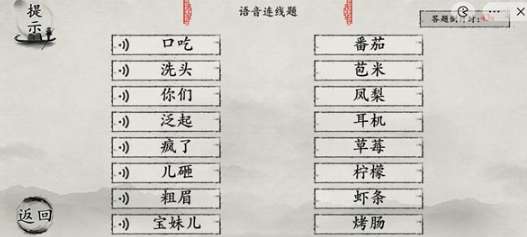 提示
语音连线题
口吃
番茄
洗头
苞米
你们
凤梨
泛起
耳机
疯了
草莓
儿砸
柠檬
粗眉
虾条
宝妹儿
烤肠
返回